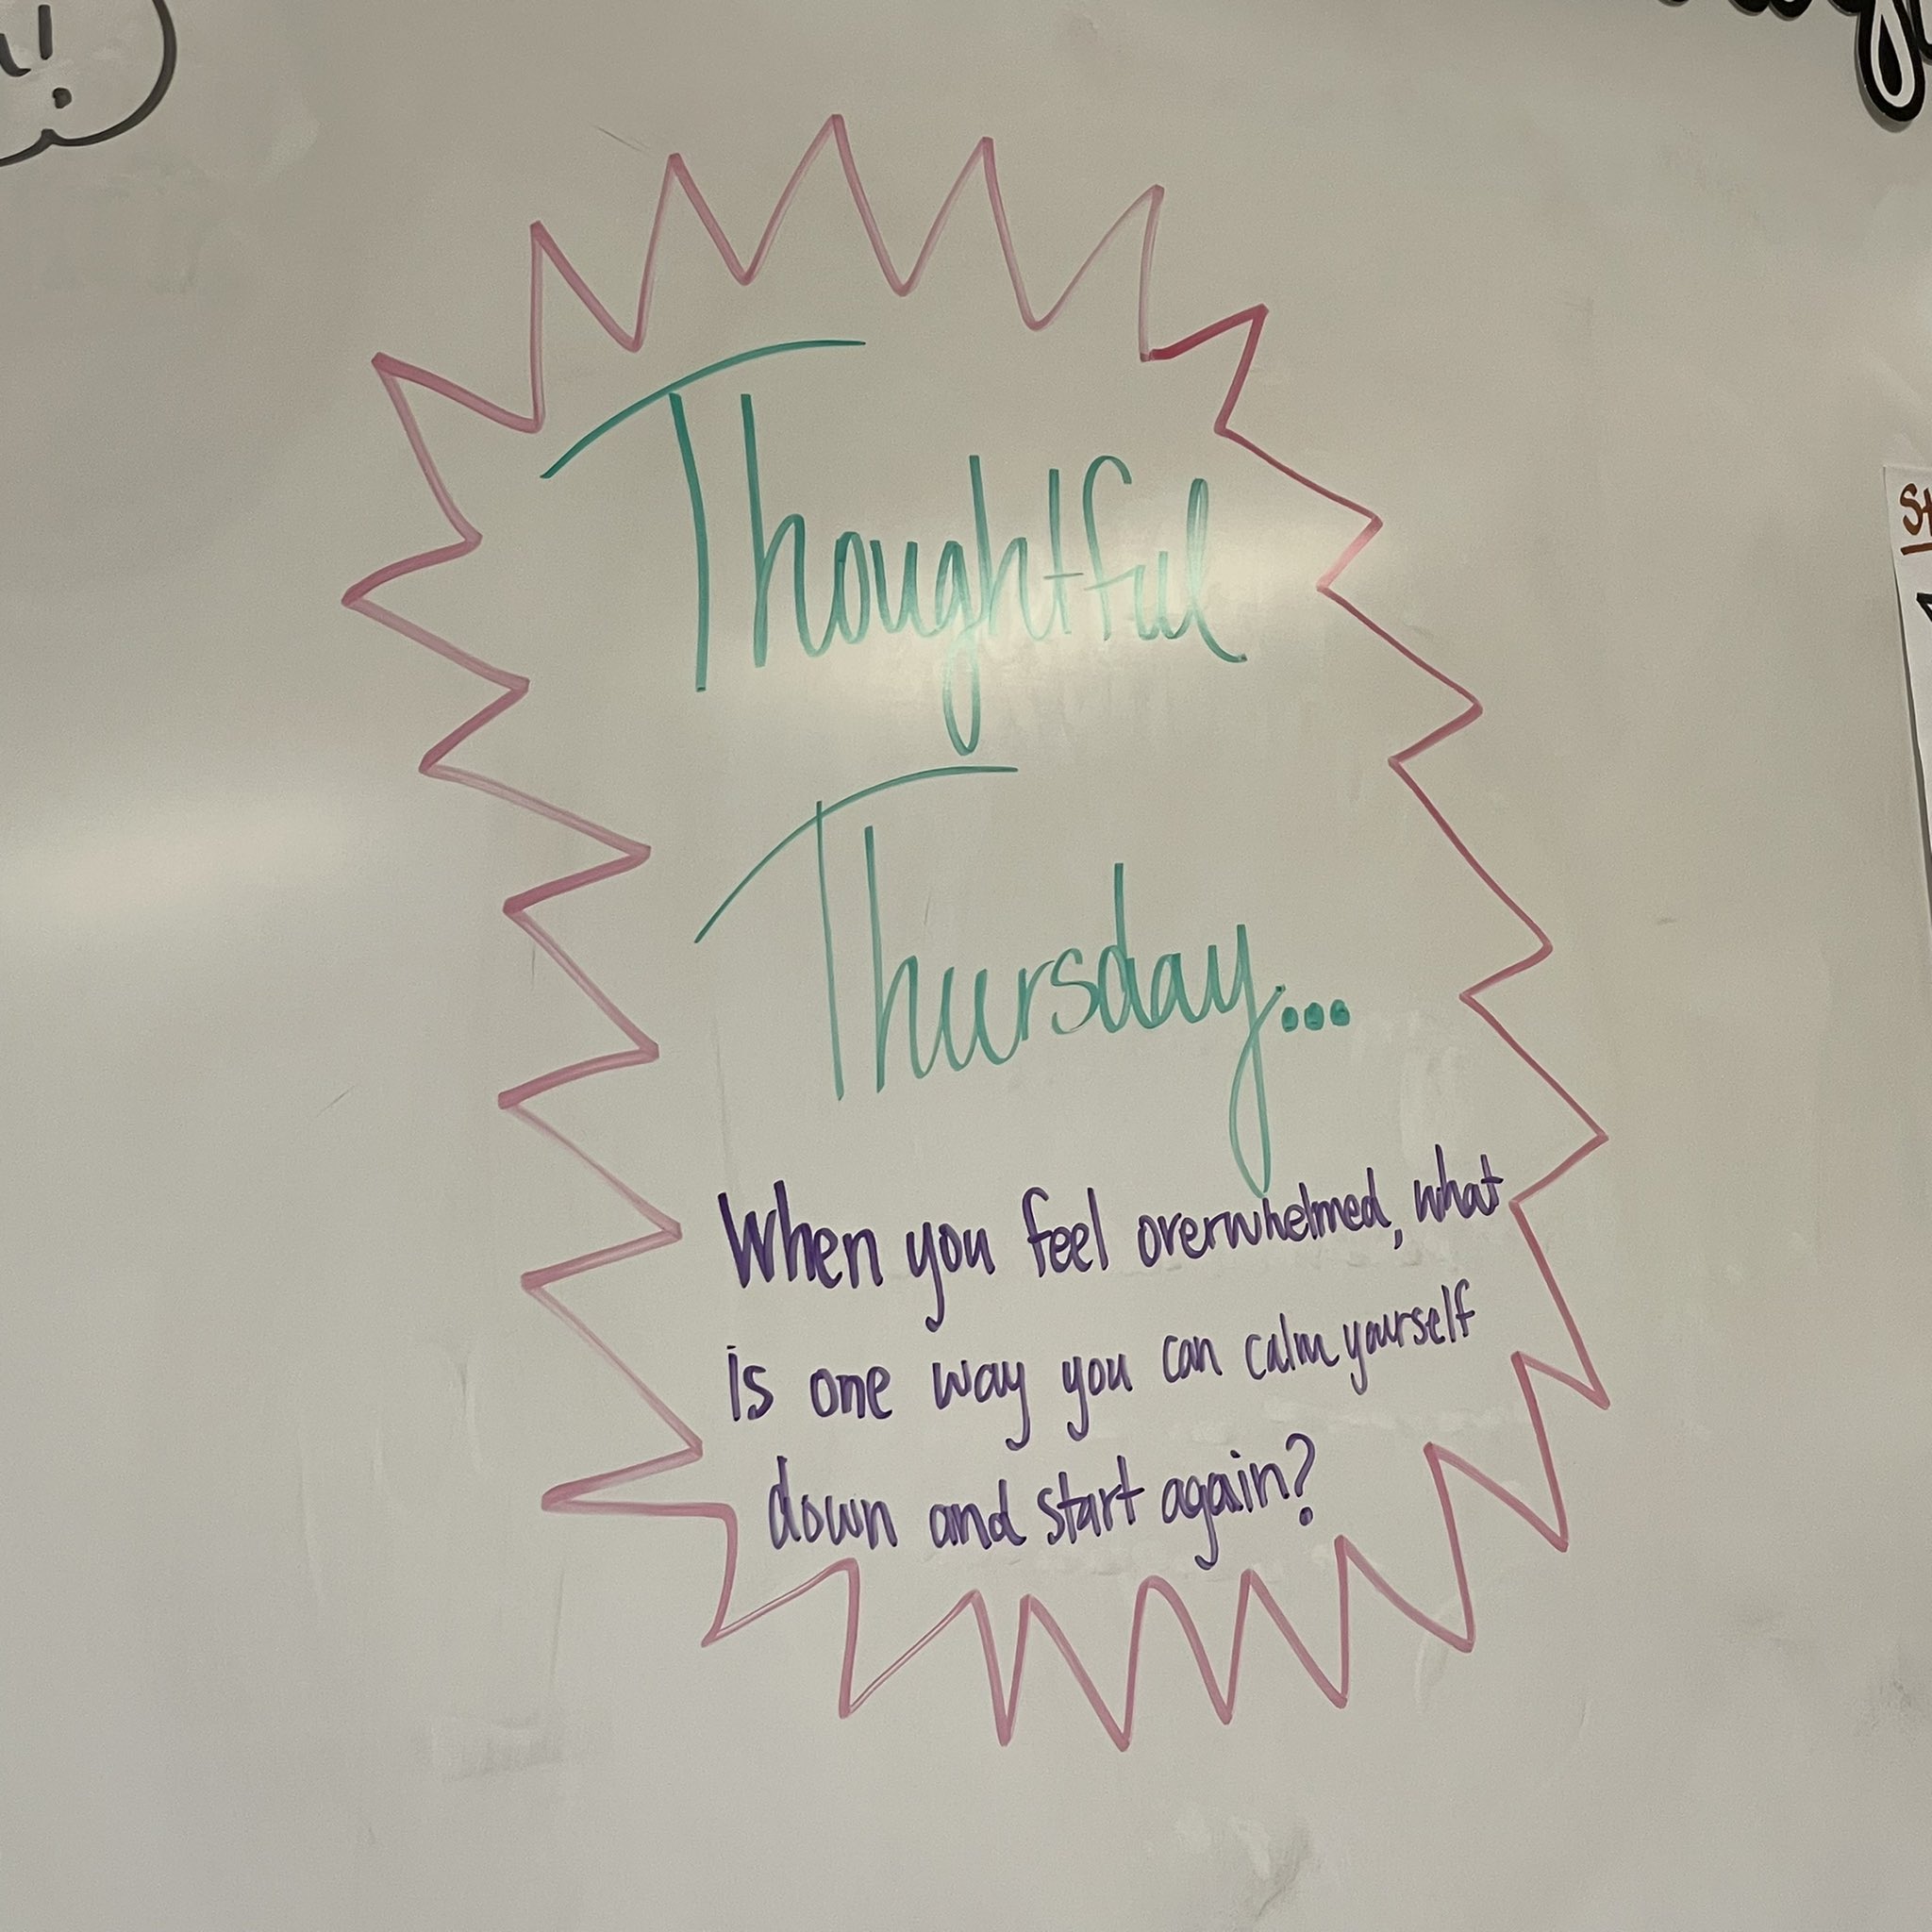 Thoughtful
Thursday...
When you feel overwhelmed, what
is one way you can calm yourself
down and start again?